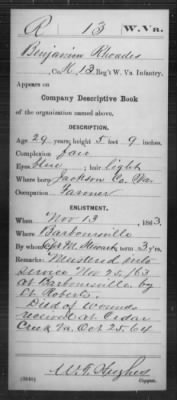 R 13 W. Va.
Benjamin Rhoades
, Co. K, 13 Reg't W. Va. Infantry.
Appears on
Company Descriptive Book
of the organization named above.
DESCRIPTION.
Age 29 years; height 5 feet 9 inches.
Complexion fair
Eyes blue; hair light
Where born Jackson Co. Va.
Occupation Farmer
ENLISTMENT.
When Nov 13, 1863.
Where Barboursville
By whom M. Stewart; term 3 y'rs.
Remarks: Mustered into
service Nov 25/63
at Barboursville by
Lt. Roberts.
Died of wounds
received at Cedar
Creek Va. Oct 25, 64
W. T. Hughes
Copyist.